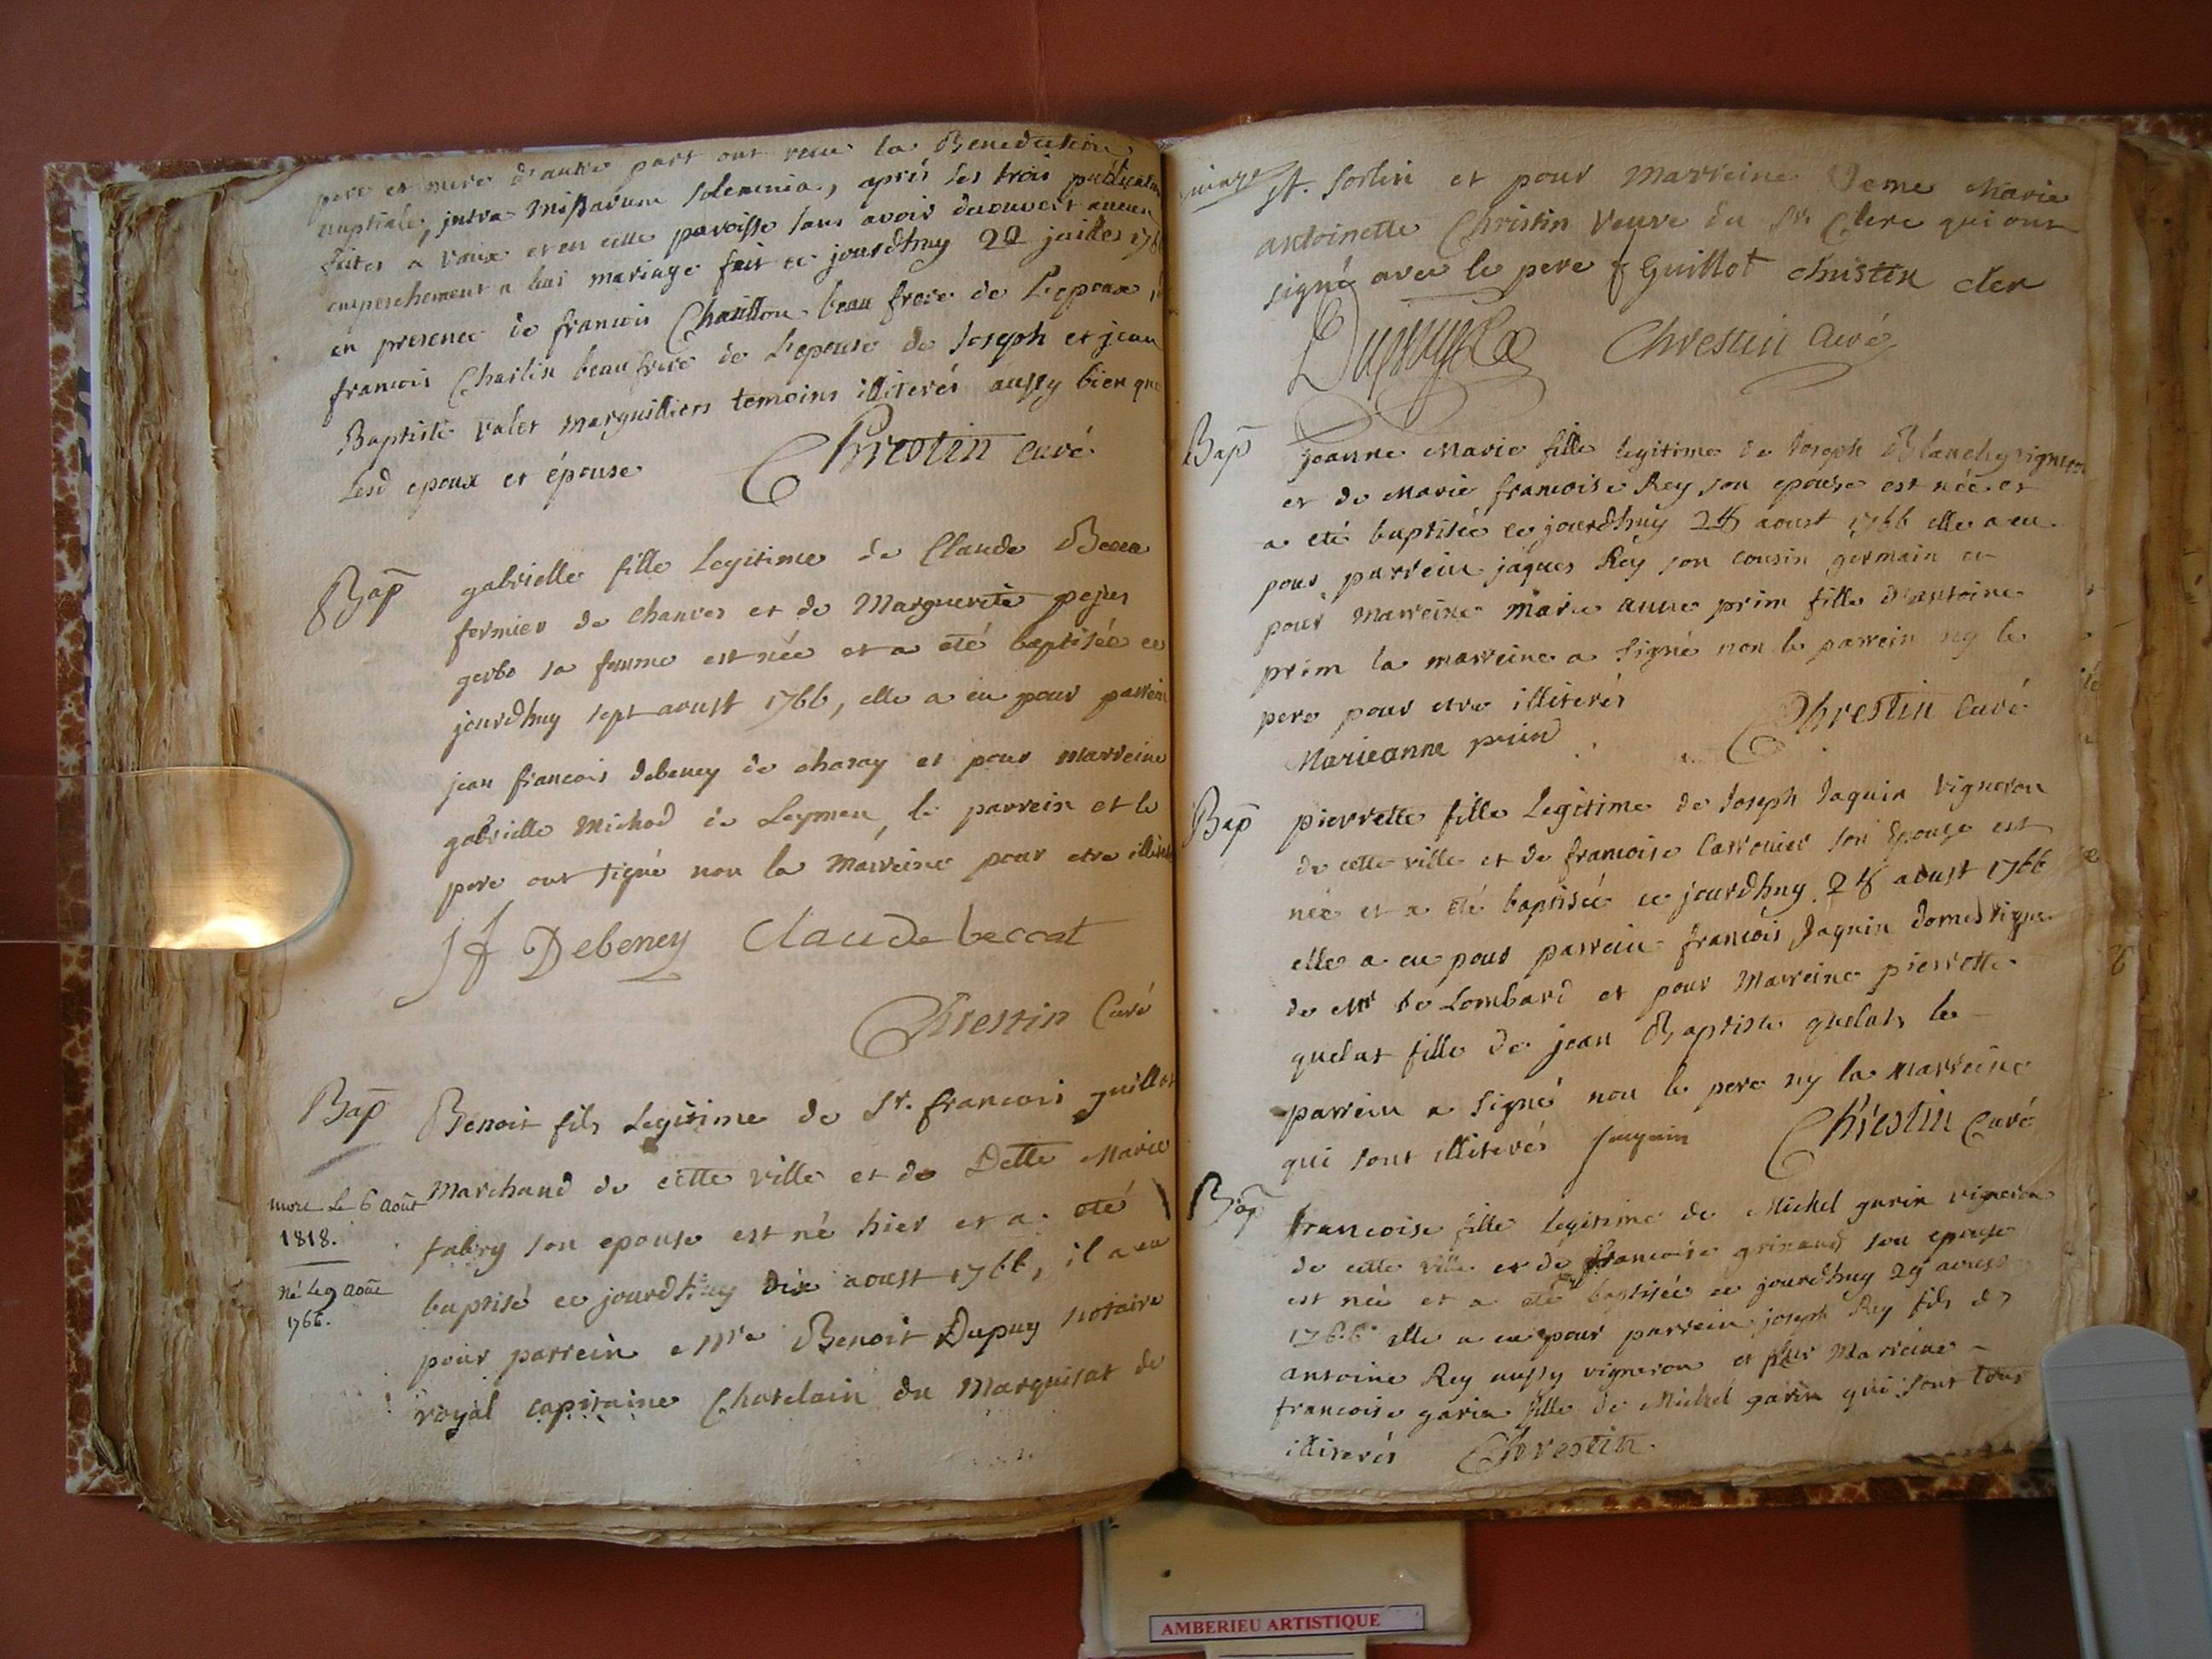 pere et mere d'autre part ont receu la Benediction
nuptiale, jntra Missarum solemnia, aprés les trois publications
faites a Vaux et en cette paroisse sans avoir decouvert aucun
empeschement a leur mariage fait ce jourdhuy 22 juillet 1766
en presence de francois Chaillon beau frere de L'epoux,
francois Charlin beau frere de L'epouse de Joseph et jean
Baptiste Valet marguilliers temoins illiterés aussy bien que
Lesd epoux et épouse Chrestin Curé
Bap gabrielle fille Legitime de Claude
fermier de Chanves et de Marguerite
gerbe sa femme est née et a eté baptisée ce
jourdhuy sept aoust 1766, elle a eu pour parrein
jean francois debeney de charay et pour Marreine
gabrielle Michod de Leymen, le parrein et le
pere ont signé non la Marreine pour etre
J f Debeney Claude beccat
Chrestin Curé
Bap Benoit fils Legitime de Sr. francois guillot
Marchand de cette ville et de Delle Marie
fabry son epouse est né hier et a eté
baptisé ce jourdhuy dix aoust 1766, il a eu
pour parrein Mre Benoit Dupuy notaire
royal capitaine Chatelain du Marquisat de
mort Le 6 Août
1818.
Né Le 9 Août
1766.
St. Sorlin et pour Marreine Deme Marie
antoinette Christin Veuve du Sr. Clerc qui ont
signé avec le pere f Guillot christin cler
Chrestin Curé
Bap Jeanne Marie fille legitime de Joseph Blanchy vigneron
et de Marie francoise Rey son epouse est née et
a eté baptisée ce jourdhuy 24 aoust 1766 elle a eu
pour parrein jaques Rey son cousin germain et
pour Marreine Marie anne prim fille d'antoine
prim la marreine a signé non le parrein ny le
pere pour etre illiterés Chrestin Curé
Marieanne prim
Bap pierrette fille Legitime de Joseph Jaquin Vigneron
de cette ville et de francoise Carronier son Epouse est
née et a été baptisée ce jourdhuy 24 aoust 1766
elle a eu pour parrein francois Jaquin domestique
de Mr de Lombard et pour Marreine pierrette
quelat fille de jean Baptiste quelat, le
parrein a signé non le pere ny la Marreine
qui sont illiterés jaquin Chrestin Curé
Bap francoise fille legitime de Michel garin vigneron
de cette ville et de francoise grinand son epouse
est née et a eté baptisée ce jourdhuy 29 aoust
1766 elle a eu pour parrein joseph Rey fils d
antoine Rey aussy vigneron et pour Marreine
francoise garin fille de Michel garin qui sont tous
illiterés Chrestin.
AMBERIEU ARTISTIQUE